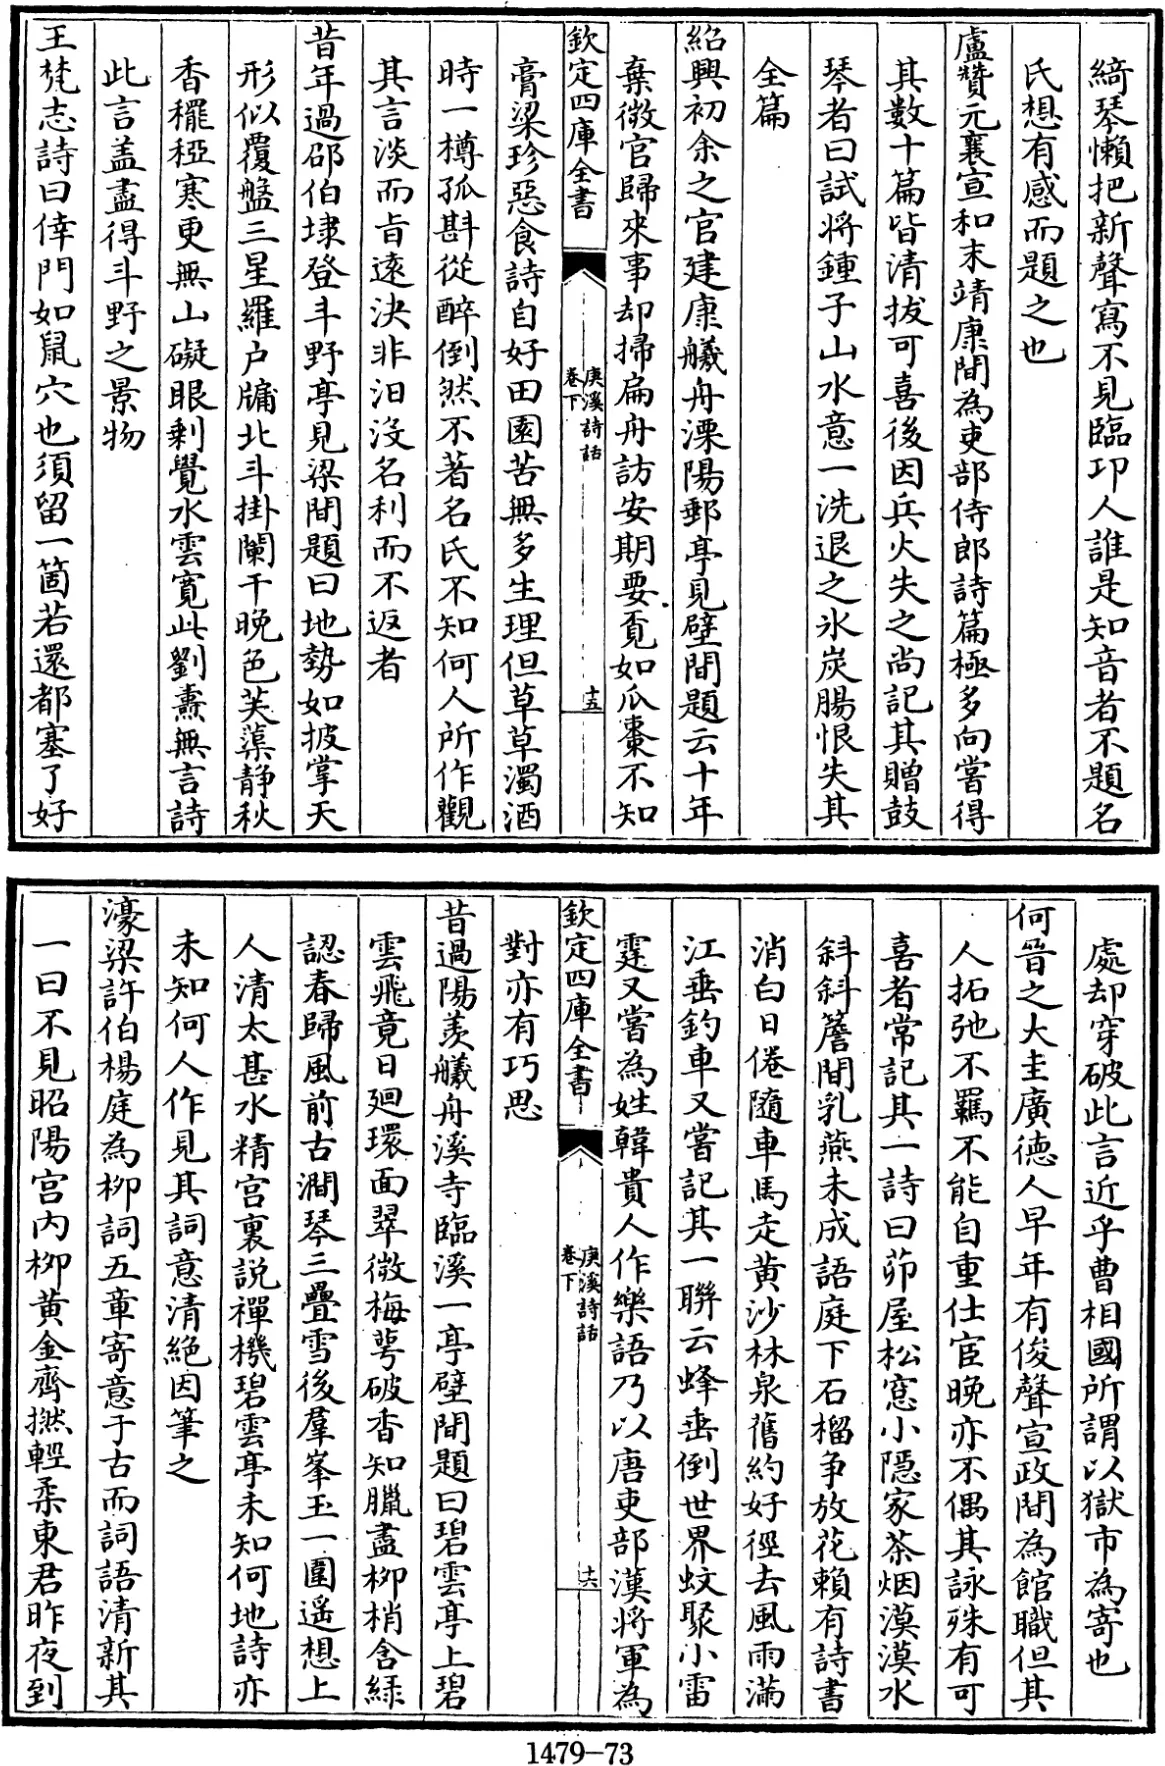 綺琴懶把新聲寫不見臨邛人誰是知音者不題名
氏想有感而題之也
盧贊元襄宣和末靖康間為吏部侍郎詩篇極多向嘗得
其數十篇皆清拔可喜後因兵火失之尚記其贈鼓
琴者曰試將鍾子山水意一洗退之氷炭腸恨失其
全篇
紹興初余之官建康艤舟溧陽郵亭見壁間題云十年
棄微官歸來事却掃扁舟訪安期要覔如瓜棗不知
欽定四庫全書
庚溪詩話
卷下
十五
膏粱珍惡食詩自好田園苦無多生理但草草濁酒
時一樽孤斟從醉倒然不著名氏不知何人所作觀
其言淡而旨遠決非汨沒名利而不返者
昔年過邵伯埭登斗野亭見梁間題曰地勢如披掌天
形似覆盤三星羅户牖北斗掛闌干晚色芙蕖静秋
香穲稏寒更無山礙眼剩覺水雲寬此劉燾無言詩
此言盖盡得斗野之景物
王梵志詩曰倖門如鼠穴也須留一箇若還都塞了好
處却穿破此言近乎曹相國所謂以獄市為寄也
何晉之大圭廣德人早年有俊聲宣政間為館職但其
人拓弛不羈不能自重仕宦晚亦不偶其詠殊有可
喜者常記其一詩曰茆屋松窓小隠家茶烟漠漠水
斜斜簷間乳燕未成語庭下石榴争放花賴有詩書
消白日倦隨車馬走黄沙林泉舊約好徑去風雨滿
江垂釣車又嘗記其一聯云蜂垂倒世界蚊聚小雷
霆又嘗為姓韓貴人作樂語乃以唐吏部漢將軍為
欽定四庫全書
庚溪詩話
卷下
十六
對亦有巧思
昔過陽羨艤舟溪寺臨溪一亭壁間題曰碧雲亭上碧
雲飛竟日廻環面翠微梅萼破香知臘盡柳梢含緑
認春歸風前古澗琴三疊雪後羣峯玉一圍遥想上
人清太甚水精宫裏説禪機碧雲亭未知何地詩亦
未知何人作見其詞意清絶因筆之
濠梁許伯楊庭為柳詞五章寄意于古而詞語清新其
一曰不見昭陽宫内柳黄金齊撚輕柔東君昨夜到
1479-73